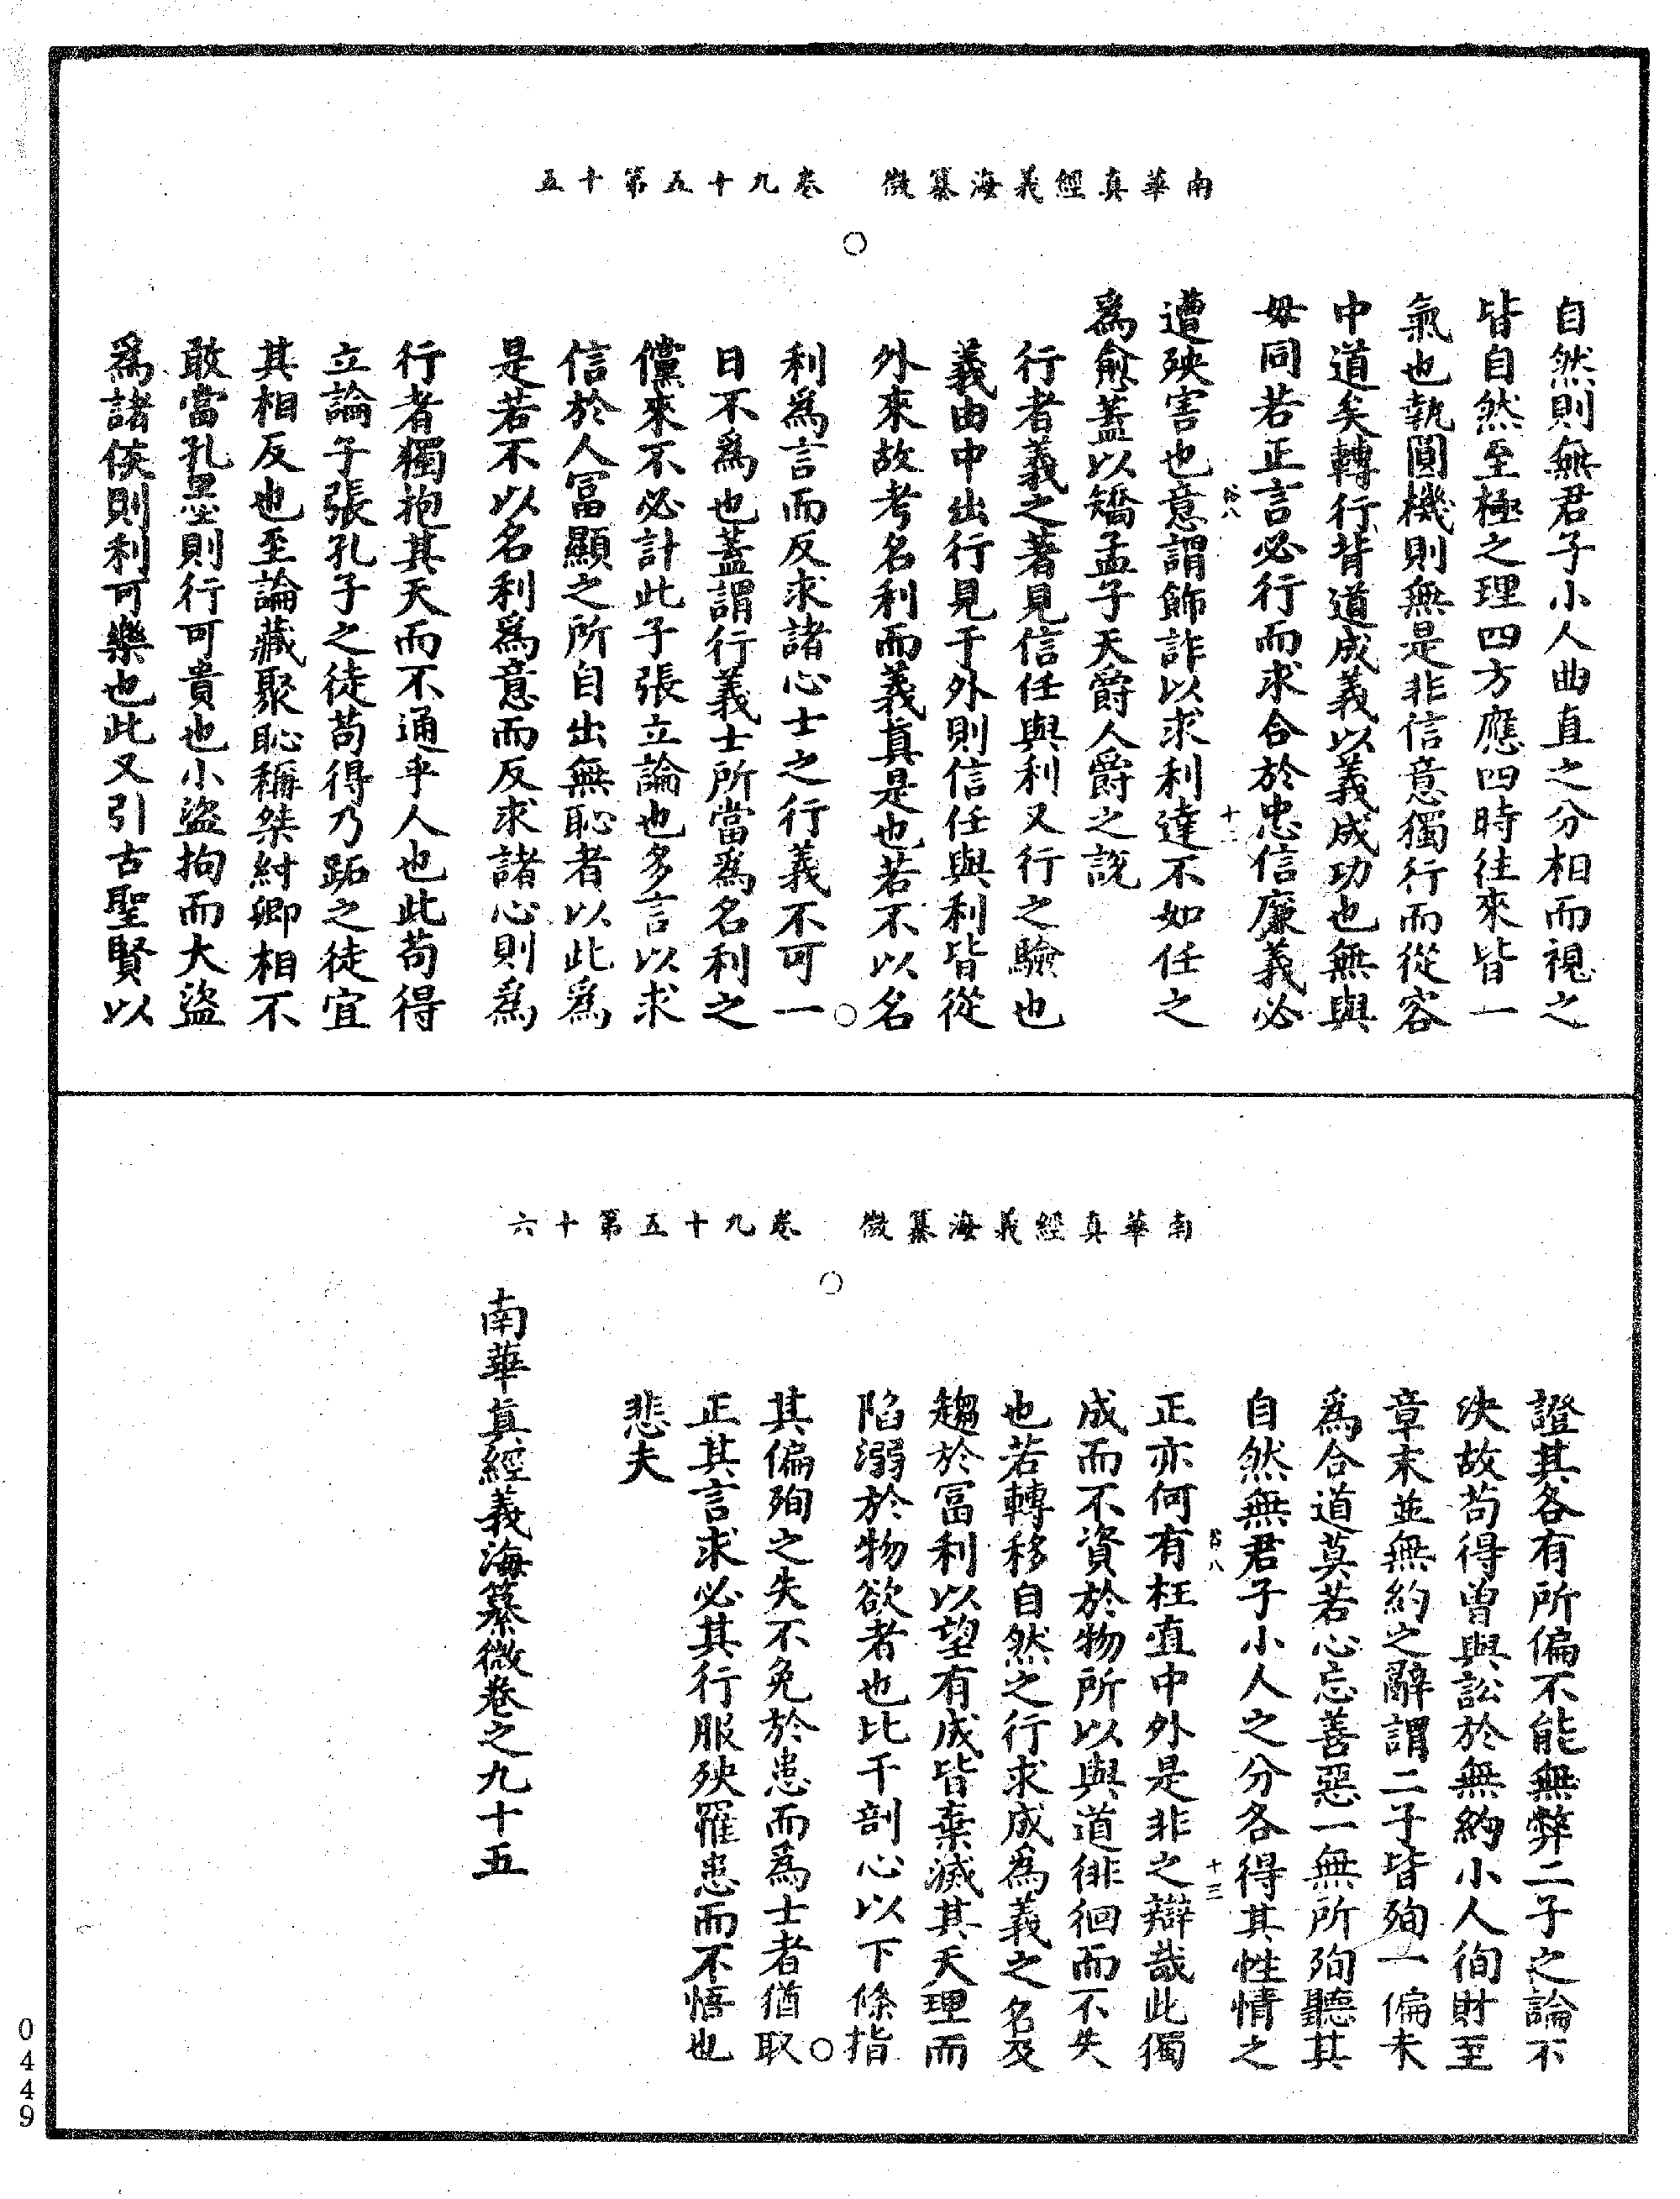 南華真經義海纂微　卷九十五第十五
自然則無君子小人曲直之分相而視之
皆自然至極之理四方應四時往來皆一
氣也執圓機則無是非信意獨行而從容
中道矣轉行背道成義以義成功也無與
毋同若正言必行而求合於忠信廉義必
遭殃害也意謂飾詐以求利達不如任之
爲愈蓋以矯孟子天爵人爵之說
行者義之著見信任與利又行之驗也
義由中出行見于外則信任與利皆從
外來故考名利而義真是也若不以名
利爲言而反求諸心士之行義不可一
日不爲也蓋謂行義士所當爲名利之
儻來不必計此子張立論也多言以求
信於人冨顯之所自出無恥者以此爲
是若不以名利爲意而反求諸心則爲
行者獨抱其天而不通乎人也此苟得
立論子張孔子之徒苟得乃跖之徒宜
其相反也至論藏聚恥稱桀紂卿相不
敢當孔墨則行可貴也小盜拘而大盜
爲諸侯則利可樂也此又引古聖賢以
南華真經義海纂微　卷九十五第十六
證其各有所偏不能無弊二子之論不
決故苟得曽與訟於無約小人徇財至
章末並無約之辭謂二子皆殉一偏未
爲合道莫若心忘善惡一無所殉聽其
自然無君子小人之分各得其性情之
正亦何有枉直中外是非之辯哉此獨
成而不資於物所以與道徘徊而不失
也若轉移自然之行求成爲義之名及
趨於冨利以望有成皆棄滅其天理而
陷溺於物欲者也比干剖心以下條指
其偏殉之失不免於患而爲士者猶取
正其言求必其行服殃罹患而不悟也
悲夫
南華真經義海纂微卷之九十五
0449